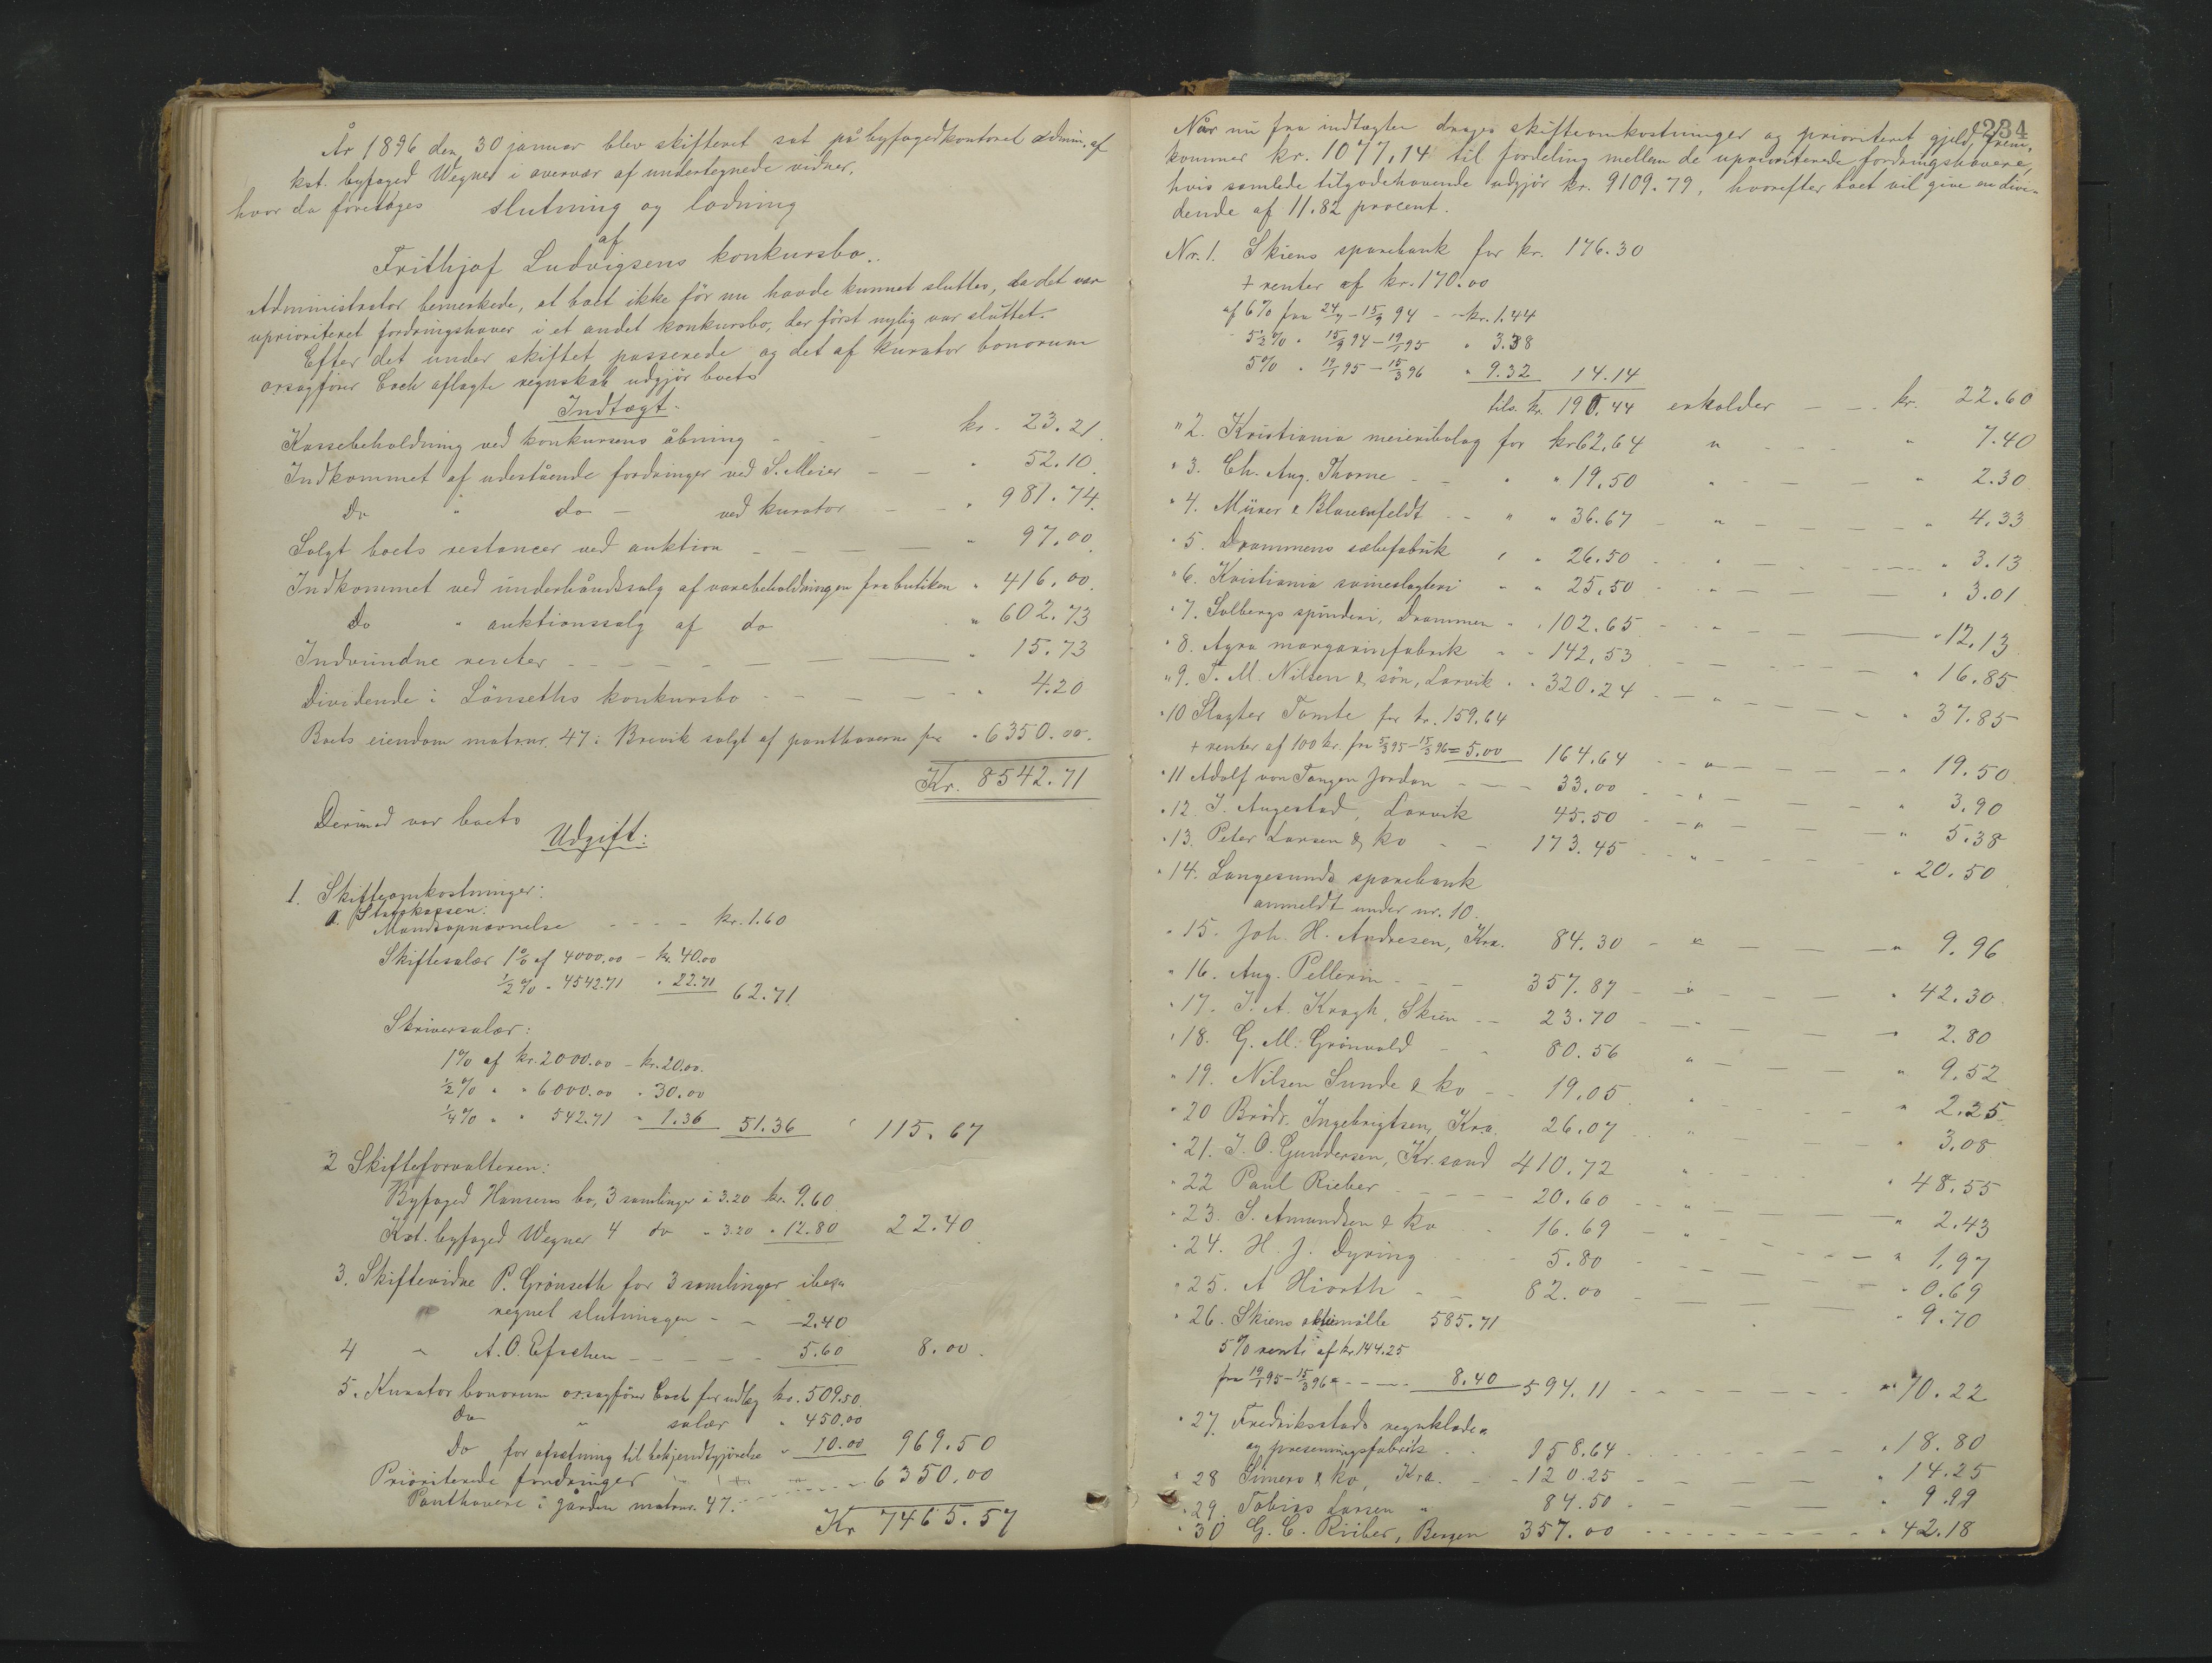 År 1896 den 30 januar blev skifteret sat på byfogedkontoret admin. af
kst. byfoged Wegner i overvær af undertegnede vidner,
hvor da foretoges slutning og lodning
af
Frithjof Ludvigsens konkursbo.
Administrator bemerkede, at boet ikke før nu havde kunnet sluttes, da det var
uprioriteret fordringshaver i et andet konkursbo, der først nylig var sluttet.
Efter det under skiftet passerede og det af kurator bonorum
orsagfører Coch aflagte regnskab udgjør boets
Indtægt.
Kassebeholdning ved konkursens åbning - - - kr. 23.21
Indkommet af udestående fordringer ved S. Meier - - " 52.10
Do " do - ved kurator - - " 981.74
Solgt boets restancer ved auktion - - - " 97.00
Indkommet ved underhåndssalg af varebeholdningen fra butiken " 416.00
Do " auktionssalg af do " 602.73
Indvundne renter - - - " 15.73
Dividende i Lønseths konkursbo - - - " 4.20
Boets eiendom matrnr. 47 i Brevik solgt af panthaverne for " 6350.00
Kr. 8542.71
Derimod var boets
Udgift:
1. Skifteomkostninger:
a. Statskassen:
Mandsopnævnelse - - - kr. 1.60
Skiftesalær 1% af 4000.00 - kr. 40.00
½% " 4542.71 " 22.71 62.71
Skriversalær:
1% af kr. 2000.00 - kr. 20.00
½% " " 6000.00 " 30.00
¼% " " 542.71 " 1.36 51.36 " 115.67
2 Skifteforvalteren:
Byfoged Hansens bo, 3 samlinger à 3.20 kr. 9.60
Kst. byfoged Wegner 4 do " 3.20 " 12.80 22.40
3. Skiftevidne P. Grönseth for 3 samlinger ibe-
regnet slutningen - - 2.40
4 " A. O. Efschen - - - 5.60 8.00
5. Kurator bonorum orsagfører Coch for udlæg kr. 509.50
Do " salær " 450.00
Do for afsætning til bekjendtgjörelse " 10.00 969.50
Prioriterede fordringer
Panthavere i gården matrnr. 47. - - - 6350.00
Kr 7465.57
234
Når nu fra indtægten drages skifteomkostninger og prioriteret gjeld, frem-
kommer kr. 1077,14 til fordeling mellem de uprioriterede fordringshavere,
hvis samlede tilgodehavende udgjør kr. 9109.79, hvorefter boet vil give en divi-
dende af 11.82 procent.
Nr. 1. Skiens sparebank for kr. 176.30
+ renter af kr. 170.00
af 6% fra 24/7 - 15/9 94 - - kr. 1.44
5½% " 15/9 94 - 19/1 95 " 3.38
5% " 19/1 95 - 15/3 96 " 9.32 14.14
tils. kr. 190.44 erholder - - kr. 22.60
" 2. Kristiania meieribolag for kr 62.64 " " 7.40
" 3. Ch. Aug. Thorne - - " " 19.50 " " 2.30
" 4. Müser & Blauenfeldt - - " " 36.67 " " 4.33
" 5. Drammens sæbefabrik " " 26.50 " " 3.13
" 6. Kristiania svineslagteri " " 25.50 " " 3.01
" 7. Solbergs spinderi, Drammen " " 102.65 " " 12.13
" 8. Agra margarinfabrik " " 142.53 " " 16.85
" 9. T. M. Nilsen & søn, Larvik " " 320.24 " " 37.85
" 10 Slagter Tomte for kr. 159.64
+ renter af 100 kr. fra 5/3 95 - 15/3 96 = 5.00 164.64 " " 19.50
" 11 Adolf von Tangen Jordan - - - 33.00 " " 3.90
" 12. J. Augestad, Larvik 45.50 " " 5.38
" 13. Peter Larsen & ko - - 173.45 " " 20.50
" 14. Langesunds sparebank
anmeldt under nr. 10.
" 15. Joh. H. Andresen, Kra. 84.30 " " 9.96
" 16. Aug. Pellerin - - - 357.87 " " 42.30
" 17. J. A. Kragh, Skien - - 23.70 " " 2.80
" 18. G. M. Grönvold - - 80.56 " " 9.52
" 19. Nilsen Sunde & ko - - 19.05 " " 2.25
" 20 Brödr. Ingebrigtsen, Kra. 26.07 " " 3.08
" 21. J. O. Gundersen, Kr.sand 410.72 " " 48.55
" 22 Paul Rieber - - - 20.60 " " 2.43
" 23. S. Amundsen & ko - 16.69 " " 1.97
" 24. H. J. Dyring - - 5.80 " 0.69
" 25. A Hiorth - - 82.00 " 9.70
" 26. Skiens aktiemölle 585.71
5% rente af kr. 144.25
fra 19/1 95 - 15/3 96 = - - - 8.40 594.11 " 70.22
" 27. Fredriksstads regnklæde-
og presenningsfabrik - - 158.64 " 18.80
" 28 Simers & ko, Kra. - - 120.25 " 14.25
" 29. Tobias Larsen " 84.50 " 9.99
" 30 G. C. Rieber, Bergen 357.00 " 42.18